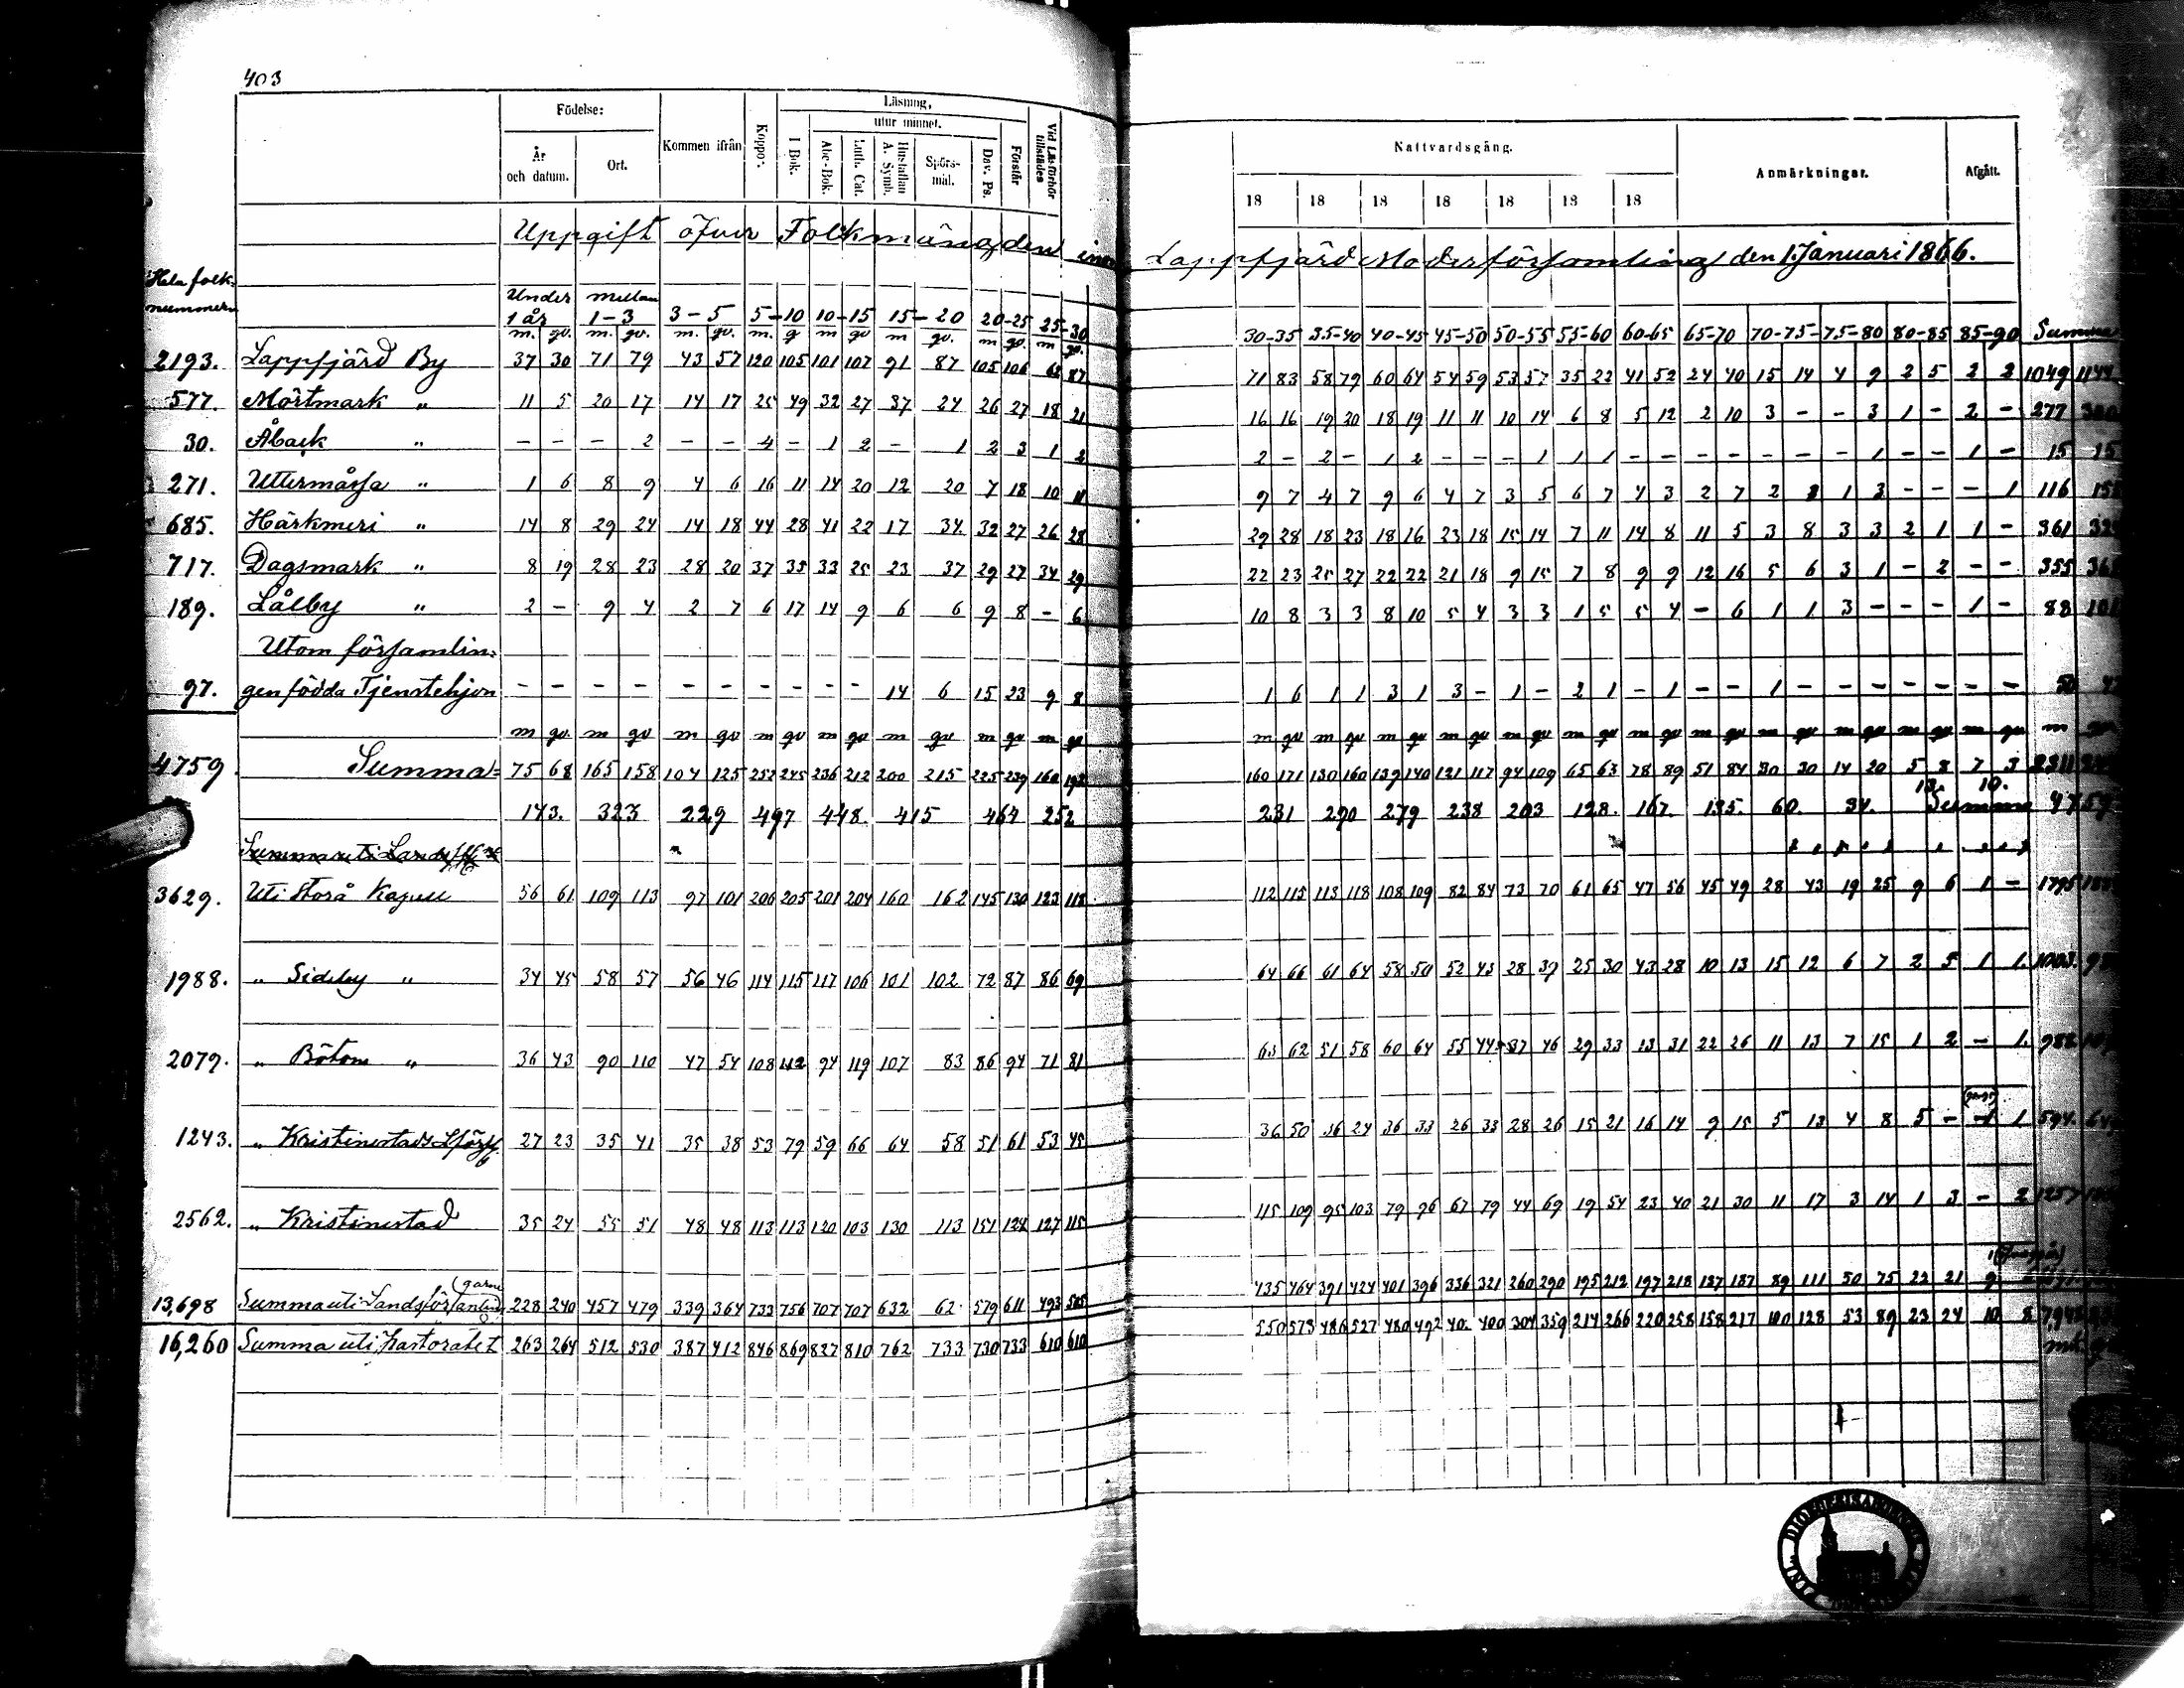 403
Födelse: Kommen ifrån Koppor. Läsning, Förstår Vid Läsförhör tillstädes
År och datum. Ort. I Bok. utur minnet.
Abc-Bok. Luth. Cat. Hustaflan A. Symb. Spörs- mål. Dav. Ps.
Nattvardsgång. Anmärkningar. Afgått.
18 18 18 18 18 18 18
Uppgift öfver Folkmängden inom Lappfjärd Moderförsamling den 1 Januari 1866.
Hela folk-
nummern
Under 1 år mellan 1-3 3-5 5-10 10-15 15-20 20-25 25-30 30-35 35-40 40-45 45-50 50-55 55-60 60-65 65-70 70-75 75-80 80-85 85-90 Summa
m. gv. m. gv. m. gv. m. g m gv m gv. m gv. m gv.
2193. Lappfjärd By 37 30 71 79 43 57 120 105 101 107 91 87 105 106 68 87 71 83 58 79 60 64 54 59 53 57 35 22 41 52 24 40 15 14 4 9 2 5 2 2 1049 1144
577. Mörtmark " 11 5 20 17 14 17 25 49 32 27 37 24 26 27 18 21 16 16 19 20 18 19 11 11 10 14 6 8 5 12 2 10 3 - - 3 1 - 2 - 277 300
30. Åback " - - - 2 - - 4 - 1 2 - 1 2 3 1 2 2 - 2 - 1 2 - - - 1 1 1 - - - - - - - 1 - - 1 - 15 15
271. Uttermåssa " 1 6 8 9 4 6 16 11 14 20 12 20 7 18 10 11 9 7 4 7 9 6 4 7 3 5 6 7 4 3 2 7 2 1 3 - - - 1 116
685. Härkmeri " 14 8 29 24 14 18 44 28 41 22 17 34 32 27 26 28 29 28 18 23 18 16 23 18 15 14 7 11 14 8 11 5 3 8 3 3 2 1 1 - 361
717. Dagsmark " 8 19 28 23 28 20 37 35 33 25 23 37 29 27 34 29 22 23 25 27 22 22 21 18 9 15 7 8 9 9 12 16 5 6 3 1 - 2 - - 355
189. Lålby " 2 - 9 4 2 7 6 17 14 9 6 6 9 8 - 6 10 8 3 3 8 10 5 4 3 3 1 5 5 4 - 6 1 1 3 - - - 1 - 88 101
Utom församlin-
97. gen födda Tjenstehjon - - - - - - - - - - 14 6 15 23 9 8 1 6 1 1 3 1 3 - 1 - 2 1 - 1 - - 1 - - - - - - - 50 47
m gv. m gv m gv m gv m gv m gv m gv m gv m gv m gv m gv m gv m gv m gv m gv m gv m gv m gv m gv m gv m gv
4759 Summa= 75 68 165 158 104 125 252 245 236 212 200 215 225 239 160 192 160 171 130 160 139 140 121 117 94 109 65 63 78 89 51 84 30 30 14 20 5 8 7 3 2311
143. 323 229 497 448 415 464 252 231 290 279 238 203 128. 167. 135. 60. 34. 13. 10. Summa 4759
3629. Uti Storå Kapell 56 61 109 113 97 101 206 205 201 204 160 162 145 130 123 118 112 115 113 118 108 109 82 84 73 70 61 65 47 56 45 49 28 43 19 25 9 6 1 - 1795
1988. " Sideby " 34 45 58 57 56 46 114 115 117 106 101 102 72 87 86 69 64 66 61 64 58 50 52 43 28 37 25 30 43 28 10 13 15 12 6 7 2 5 1 1. 1003.
2079. " Bötom " 36 43 90 110 47 54 108 112 94 119 107 83 86 94 71 81 63 62 51 58 60 64 55 44 37 46 29 33 13 31 22 26 11 13 7 15 1 2 - 1. 982
1243. " Kristinestads Lförs 27 23 35 41 35 38 53 79 59 66 64 58 51 61 53 45 36 50 36 24 36 33 26 33 28 26 15 21 16 14 9 15 5 13 4 8 5 - 1 1 594.
2562. " Kristinestad 35 24 55 51 48 48 113 113 120 103 130 113 151 122 127 115 115 109 95 103 79 96 67 79 44 69 19 54 23 40 21 30 11 17 3 14 1 3 - 2 1257
13,698 Summa uti Landsförsamlin(garne 228 240 457 479 339 364 733 756 707 707 632 62 579 611 493 505 435 464 391 424 401 396 336 321 260 290 195 212 197 218 137 187 89 111 50 75 22 21
16,260 Summa uti Pastoratet 263 264 512 530 387 412 846 869 827 810 762 733 730 733 610 610 550 573 486 527 480 492 40 400 304 359 214 266 220 258 158 217 100 128 53 89 23 24 10 8